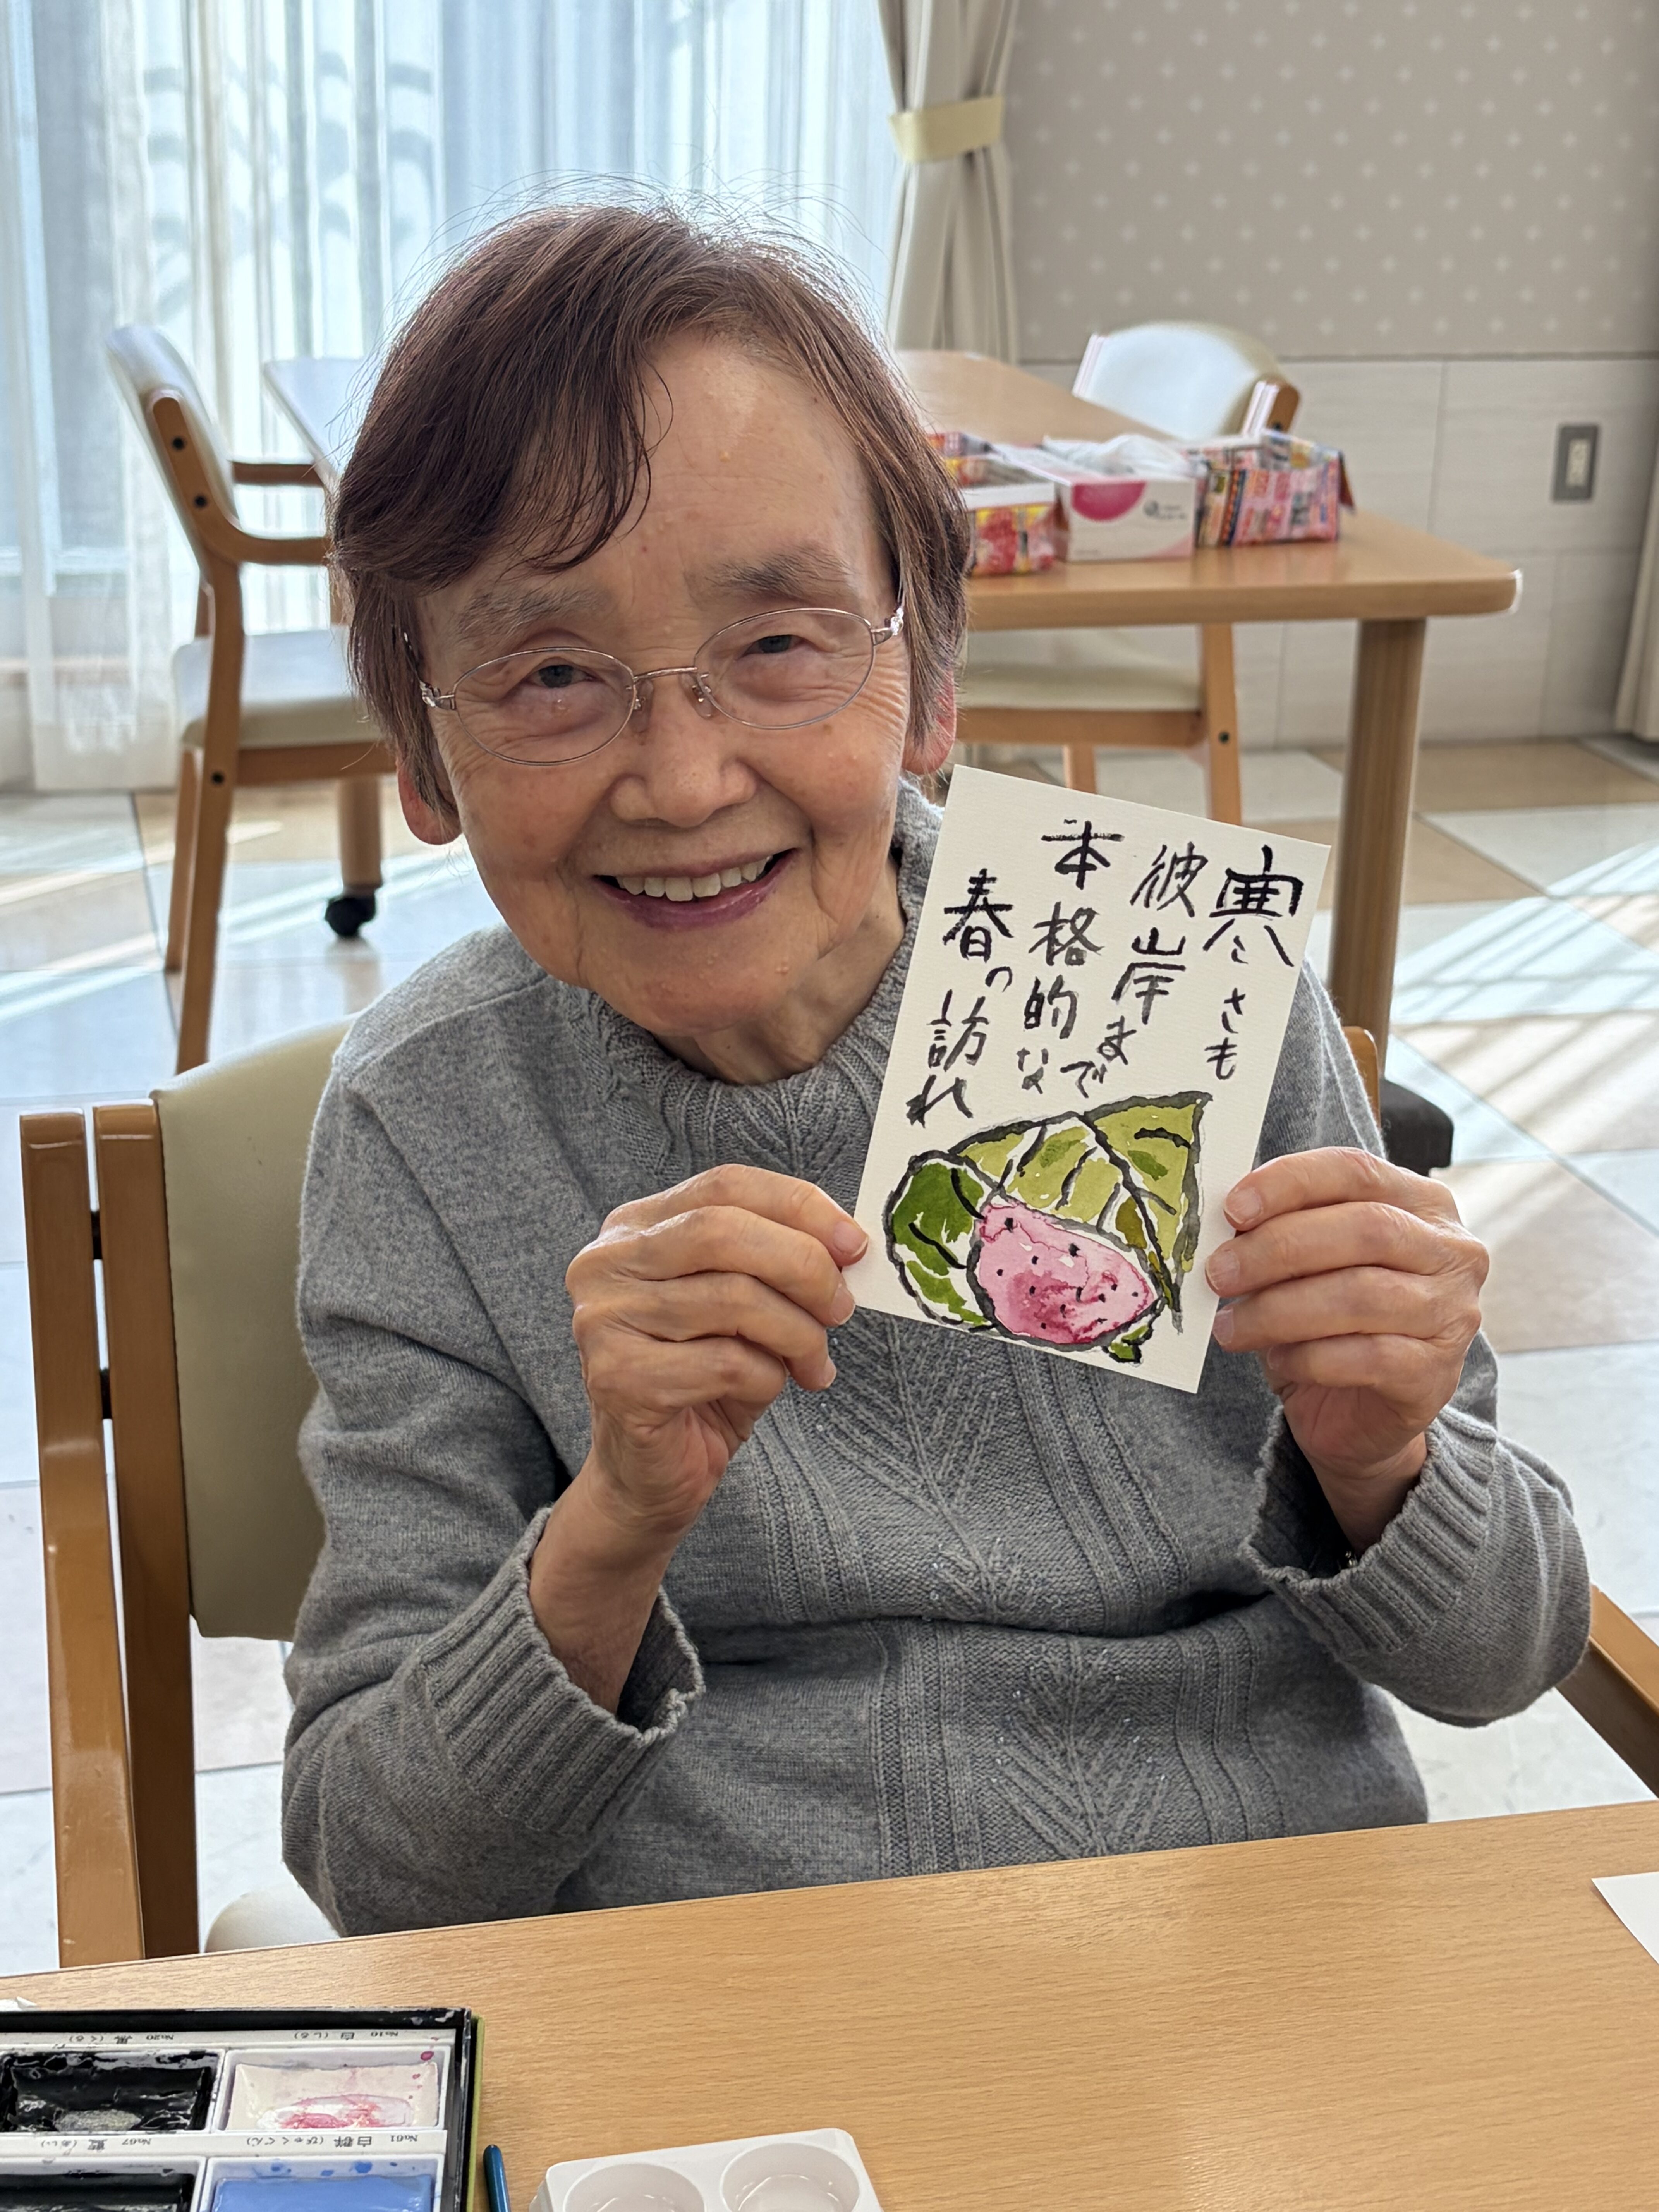 寒さも
彼岸まで
本格的な
春の訪れ
№10 白(しろ)
№20 黒(くろ)
№61 白群(びゃくぐん)
№67 藍(あい)